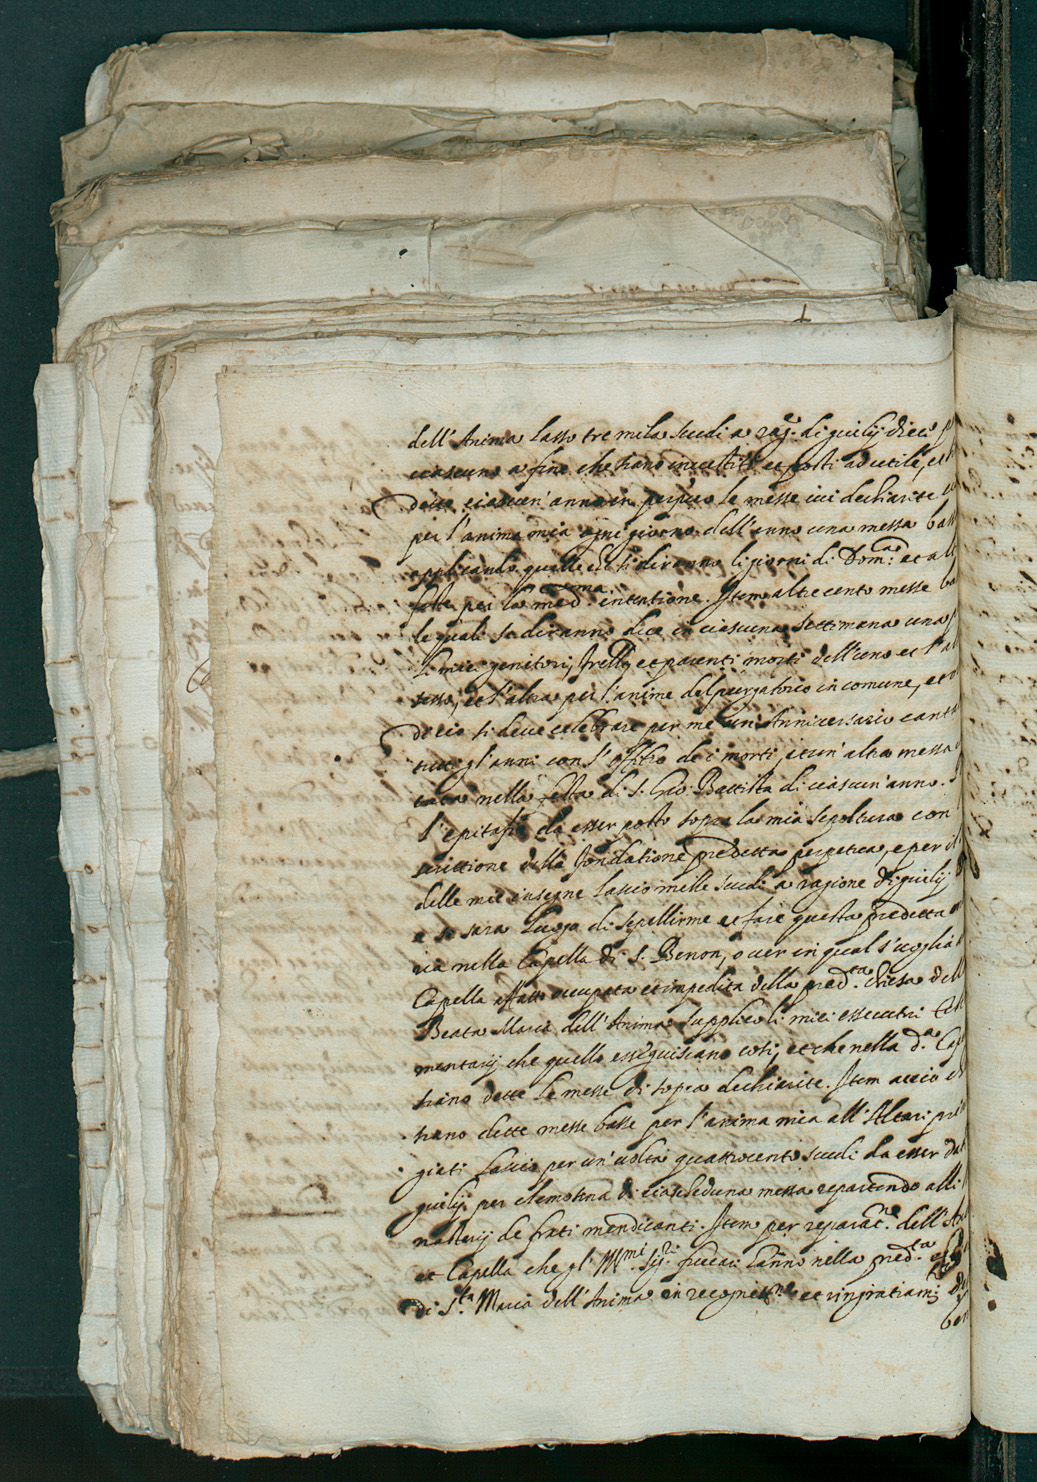 dell'Anima lasso tre mila scudi a rag.e di giulij dieci p
ciascuno a fine che siano investiti et posti ad utile, et
dette ciascun'anno in perpetuo le messe ivi dechiarite
per l'anima mia ogni giorno dell'anno una messa bass
applicando quelle che si diranno li giorni di Dom.ca et all
feste per la med.ma intentione. Item altre cento messe ba
le quali se diranno due in ciascuna settimana una p
li miei genitori, frelli et parenti morti dell'uno et l'al
sesso, et l'altra per l'anime del purgatorio in comune, et
di ciò si deve celebrare per me un'Anniversario cant
tutti gl'anni con l'offitio de i morti, et un'altra messa
cata nella festa di S. Gio: Battista di ciascun'anno.
l'epitafio da esser posto sopra la mia sepoltura con
scrittione della fondatione predetta perpetua, e per il
delle mie insegne lascio mille scudi a ragione di giulij
e se sarà luogo di sepellirme et fare questa predetta
ria nella Capella di S. Benon, over in qual s'voglia
Capella affatto occupata et impedita della pred.ta chiesa dell
Beata Maria dell'Anima supplico li miei essecutri Test
mentarij che quello essequiscano così, et che nella d.a Cap
siano dette le messe di sopra dechiarite. Item acciò ch
siano dette messe basse per l'anima mia all'Altari pri
giati lascio per un'volta quattrocento scudi da esser da
giulij per elemosina di ciascheduna messa repartendo alli
nasterij de frati mendicanti. Item per reparat.ne dell'A
et Capella che gl'Ill.mi Sig.ri fuccari hanno nella pred.ta
di S.ta Maria dell'Anima in recognit.ne et ringratiam.to d
ben